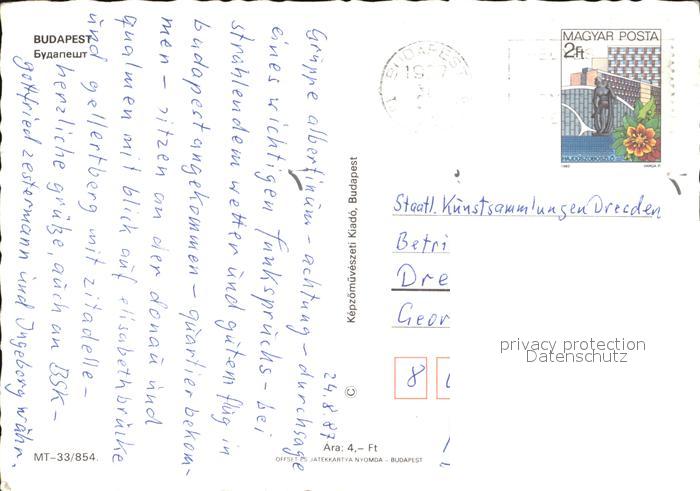 BUDAPEST
Будапешт
24.8.87
Gruppe albertinum - achtung - durchsage
eines wichtigen funkspruchs - bei
strahlendem wetter und gutem flug in
budapest angekommen - quartier bekom-
men - sitzen an der donau und
qualmen mit blick auf elisabethbrücke
und gellertberg mit zitadelle -
herzliche grüße, auch an BSK -
gottfried zestermann und Ingeborg
MT-33/854.
Képzőművészeti Kiadó, Budapest
©
Ára: 4,– Ft
OFFSET ÉS JÁTÉKKÁRTYA NYOMDA - BUDAPEST
BUDAPEST
MAGYAR POSTA
2Ft
HAJDÚSZOBOSZLÓ
Staatl. Kunstsammlungen Dresden
Betri
Dre
Geor
8
privacy protection
Datenschutz